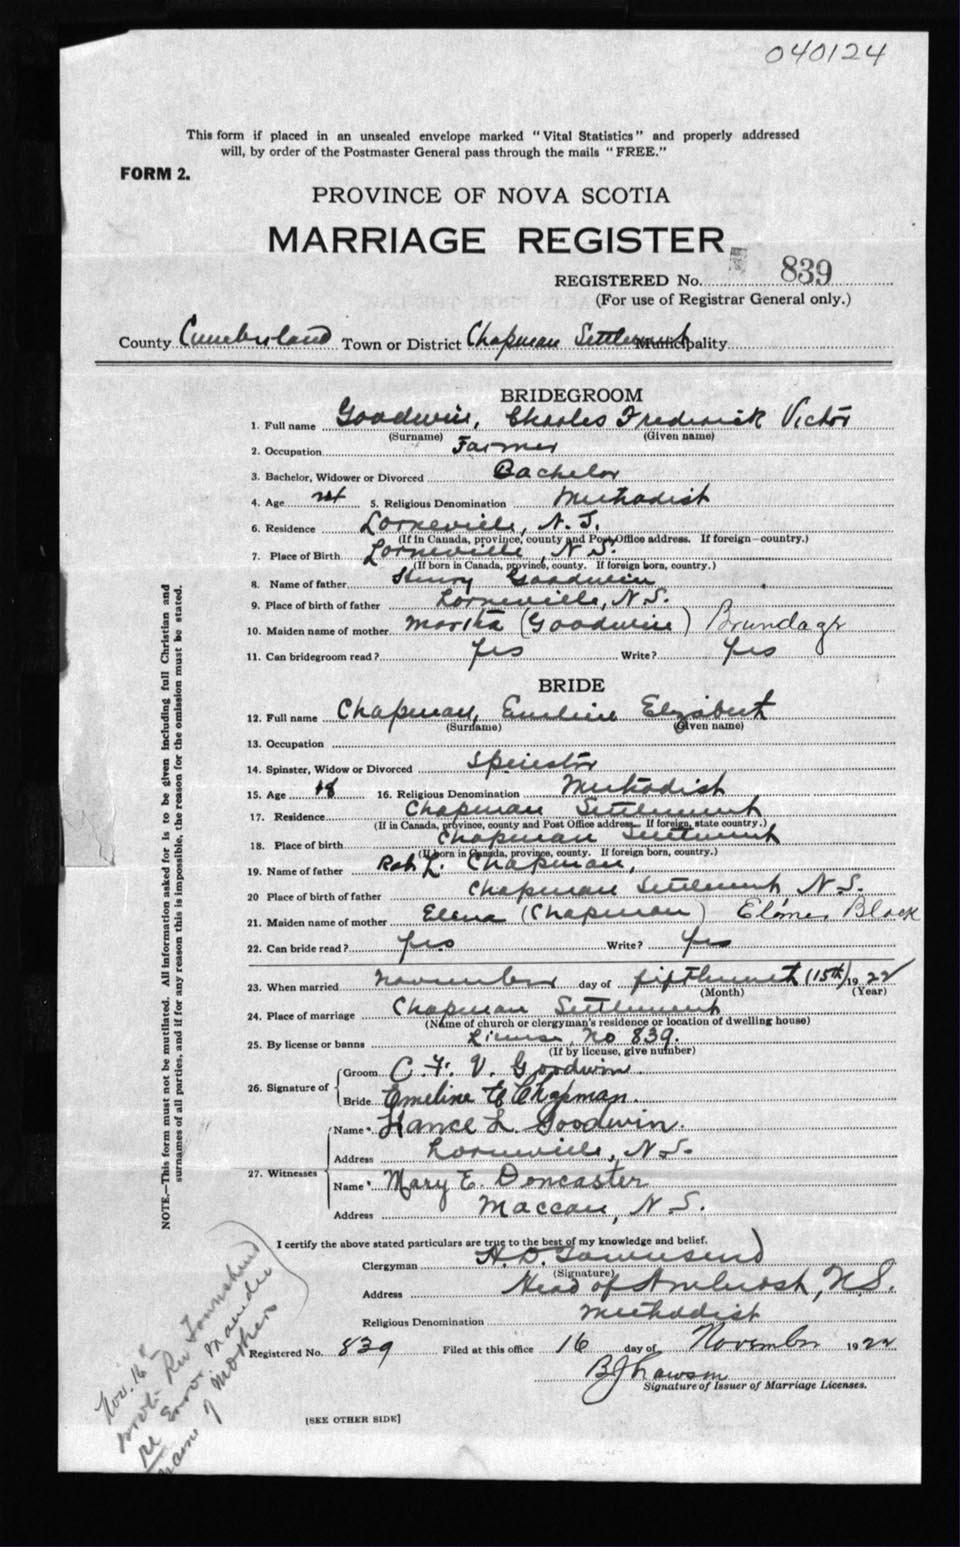 040124
This form if placed in an unsealed envelope marked "Vital Statistics" and properly addressed
will, by order of the Postmaster General pass through the mails "FREE."
FORM 2.
PROVINCE OF NOVA SCOTIA
MARRIAGE REGISTER
REGISTERED No. 839
(For use of Registrar General only.)
County Cumberland Town or District Chapman Settlement Municipality
BRIDEGROOM
1. Full name Goodwin, Charles Frederick Victor
(Surname) (Given name)
2. Occupation Farmer
3. Bachelor, Widower or Divorced Bachelor
4. Age 5. Religious Denomination Methodist
6. Residence Lorneville, N.S.
(If in Canada, province, county and Post Office address. If foreign—country.)
7. Place of Birth Lorneville, N.S.
(If born in Canada, province, county. If foreign born, country.)
8. Name of father Henry Goodwin
9. Place of birth of father Lorneville, N.S.
10. Maiden name of mother Martha (Goodwin) Brundage
11. Can bridegroom read? Yes Write? Yes
BRIDE
12. Full name Chapman, Emeline Elizabeth
(Surname) (Given name)
13. Occupation
14. Spinster, Widow or Divorced Spinster
15. Age 18 16. Religious Denomination Methodist
17. Residence Chapman Settlement
(If in Canada, province, county and Post Office address. If foreign, state country.)
18. Place of birth Chapman Settlement
(If born in Canada, province, county. If foreign born, country.)
19. Name of father Robt L. Chapman,
20 Place of birth of father Chapman Settlement N.S.
21. Maiden name of mother Elena (Chapman) Black
22. Can bride read? Yes Write? Yes
23. When married November day of fifteenth (15th) 1922
(Month) (Year)
24. Place of marriage Chapman Settlement
(Name of church or clergyman's residence or location of dwelling house)
25. By license or banns License, No 839.
(If by license, give number)
26. Signature of Groom C. F. V. Goodwin.
Bride Emeline E Chapman.
27. Witnesses Name Hance L Goodwin.
Address Lorneville, N.S.
Name Mary E. Doncaster
Address Maccan, N.S.
I certify the above stated particulars are true to the best of my knowledge and belief.
Clergyman H. D. Townsend
(Signature)
Address Head of Amherst, N.S.
Religious Denomination Methodist
Registered No. 839 Filed at this office 16 day of November 1922
B J Lawson
Signature of Issuer of Marriage Licenses.
[SEE OTHER SIDE]
NOTE.—This form must not be mutilated. All information asked for is to be given including full Christian and
surnames of all parties, and if for any reason this is impossible, the reason for the omission must be stated.
Nov. 16
wrote Rev Townshend
re Error Maiden
name of Mother